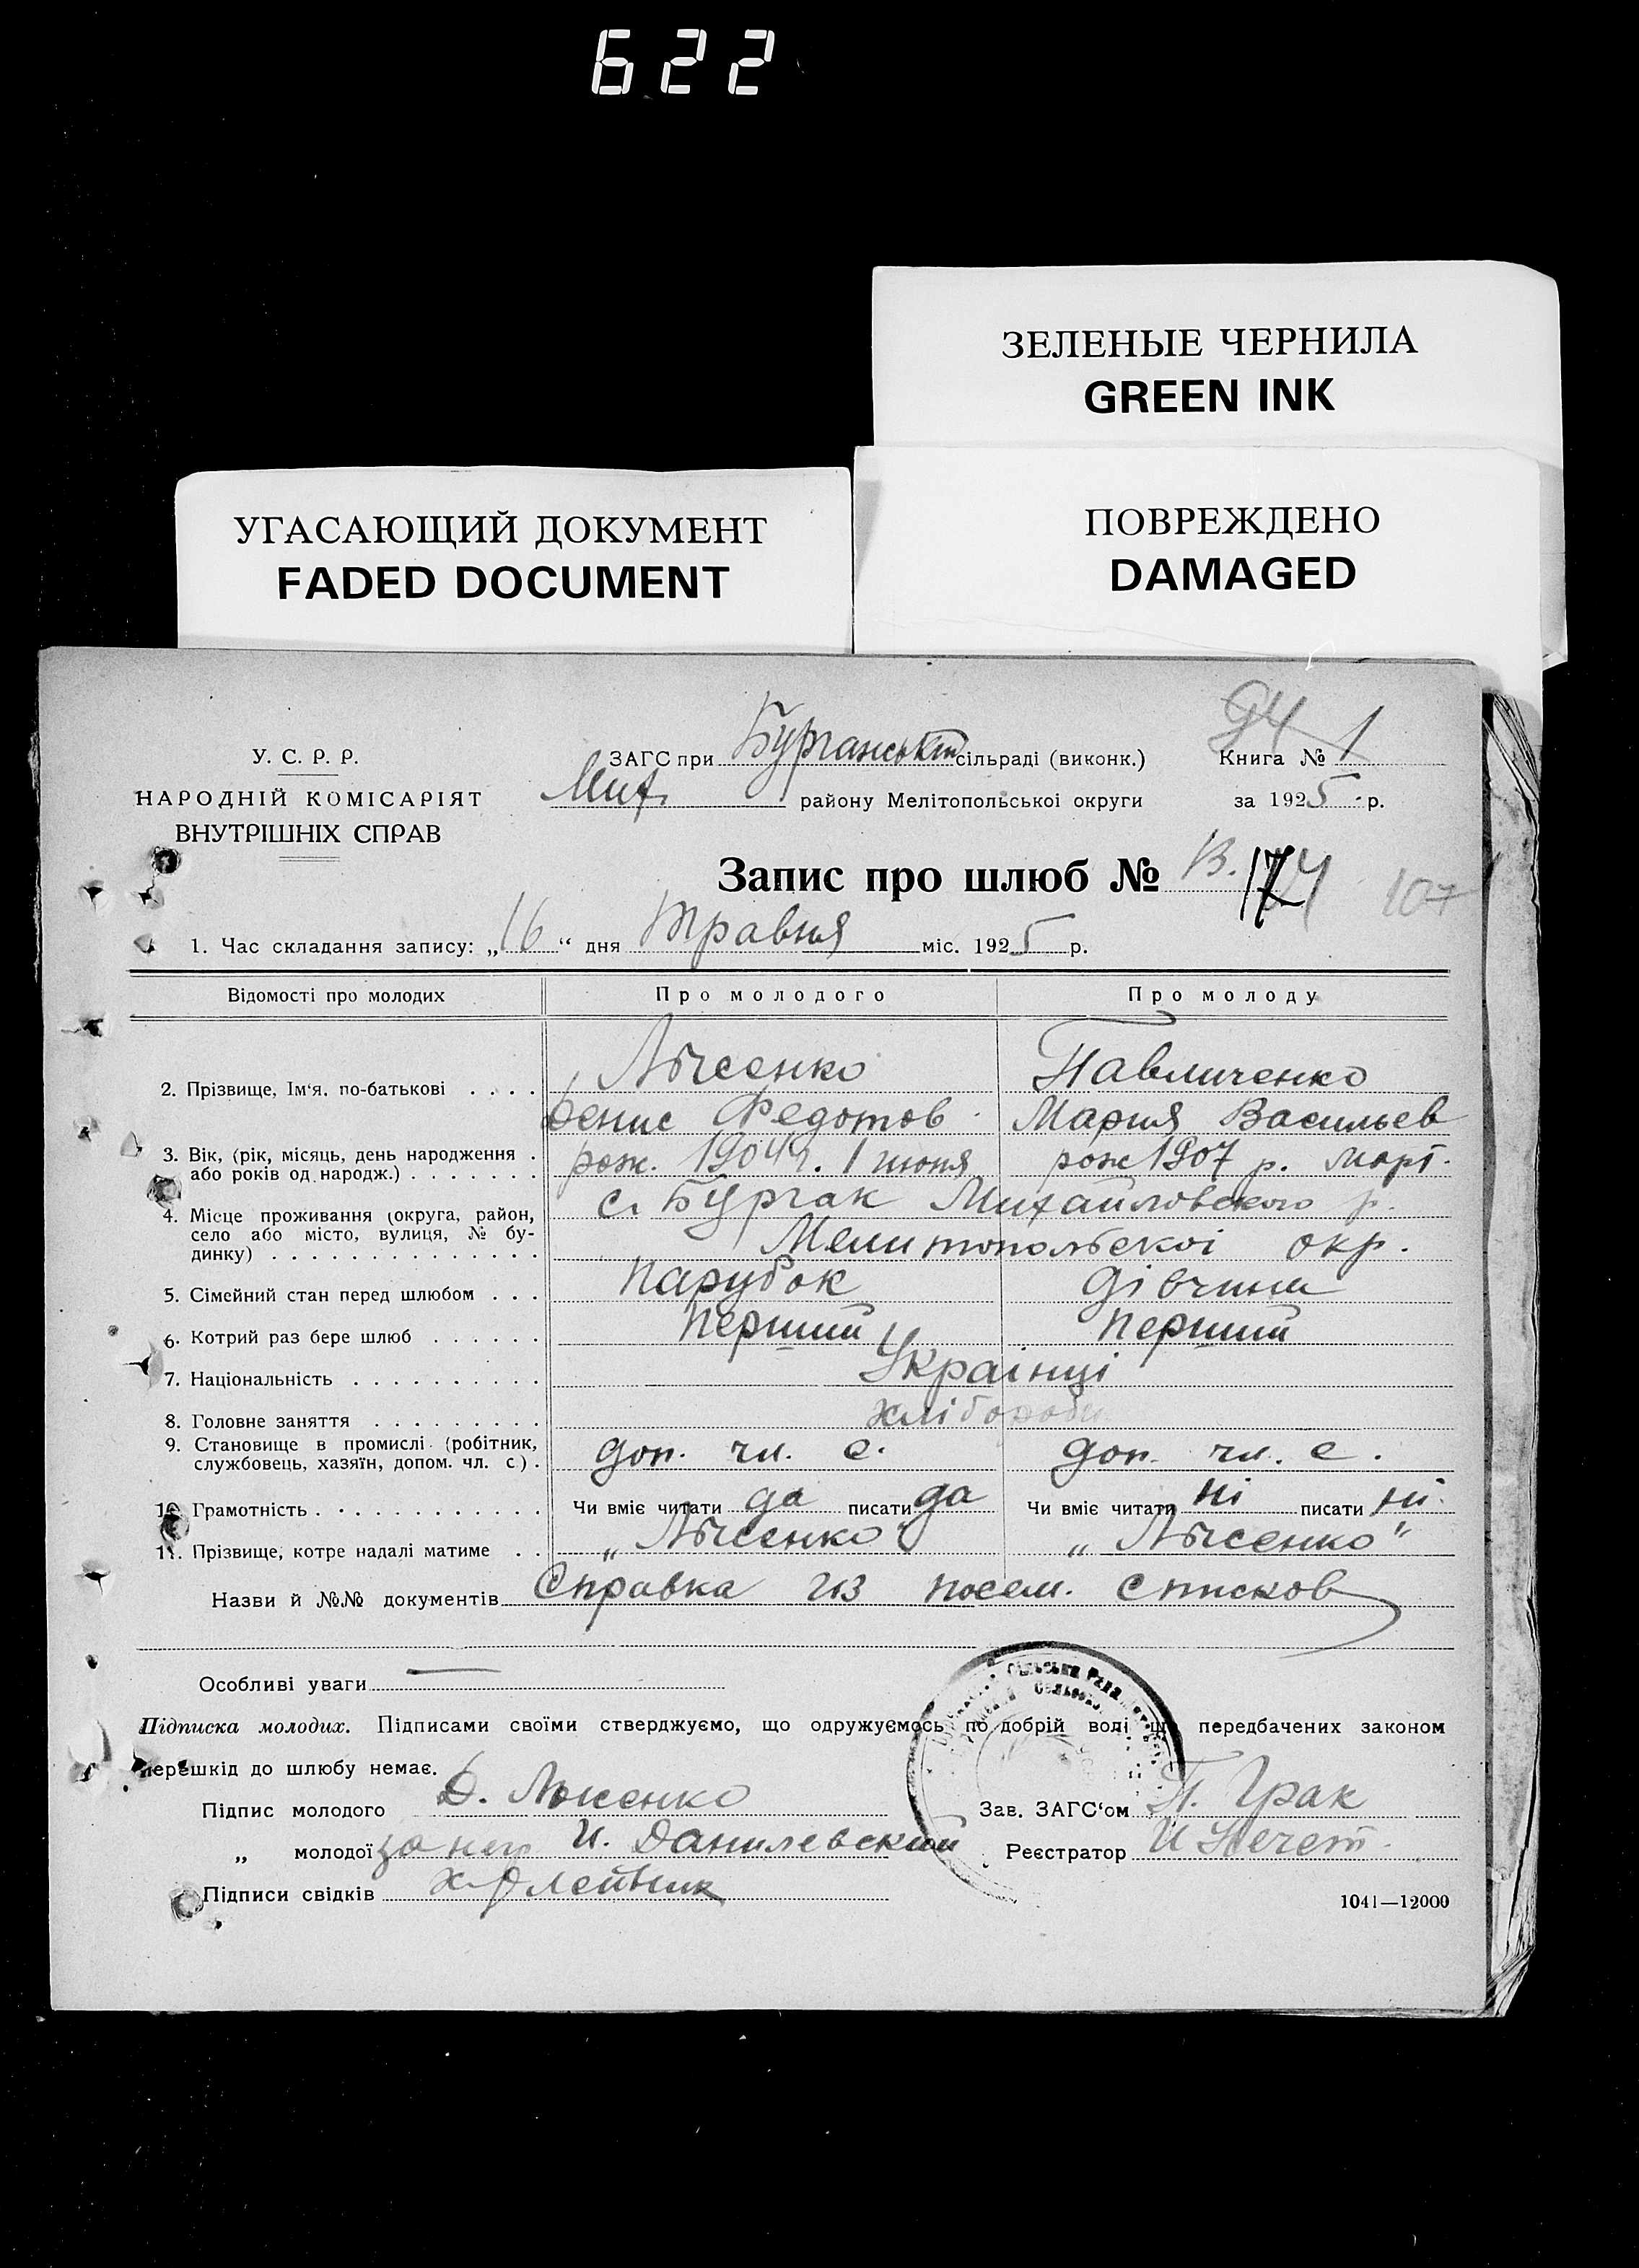 622
ЗЕЛЕНЫЕ ЧЕРНИЛА
GREEN INK
УГАСАЮЩИЙ ДОКУМЕНТ
FADED DOCUMENT
ПОВРЕЖДЕНО
DAMAGED
94 1
У. С. Р. Р.
НАРОДНІЙ КОМІСАРІЯТ
ВНУТРІШНІХ СПРАВ
ЗАГС при сільраді (виконк.) Книга №
Мих. району Мелітопольської округи за 1925 р.
Запис про шлюб № 13. 107
1. Час складання запису: „16“ дня Травня міс. 1925 р.
Відомості про молодих Про молодого Про молоду
2. Прізвище, Ім‘я, по-батькові . . . . Лысенко Павличенко
Денис Федотов Мария Васильев
3. Вік, (рік, місяць, день народження .
або років од народж.) . . . . . . . рож. 1904 г. 1 июня рож 1907 р. март.
4. Місце проживання (округа, район,
село або місто, вулиця, № бу-
динку) . . . . . . . . . . . . . .
с. Бурчак Михайловского р.
Мелитопольскоі окр.
5. Сімейний стан перед шлюбом . . . Парубок дівчина
6. Котрий раз бере шлюб . . . . . . Перший Перший
7. Національність . . . . . . . . . . Украінці
8. Головне заняття . . . . . . . . . хлібороби
9. Становище в промислі (робітник,
службовець, хазяїн, допом. чл. с.) . доп. чл. с. доп. чл. с.
10. Грамотність . . . . . . . . . . . Чи вміє читати да писати да Чи вміє читати ні писати ні
11. Прізвище, котре надалі матиме . . „Лысенко“ „Лысенко“
Назви й №№ документів Справка из посем. списков
Особливі уваги
Підписка молодих. Підписами своїми стверджуємо, що одружуємось по добрій волі що передбачених законом
перешкід до шлюбу немає.
Підпис молодого Д. Лысенко Зав. ЗАГС‘ом П. Грак
„ молодої за нег. И. Данилевский Реєстратор И
Підписи свідків Х. Олейник
1041—12000